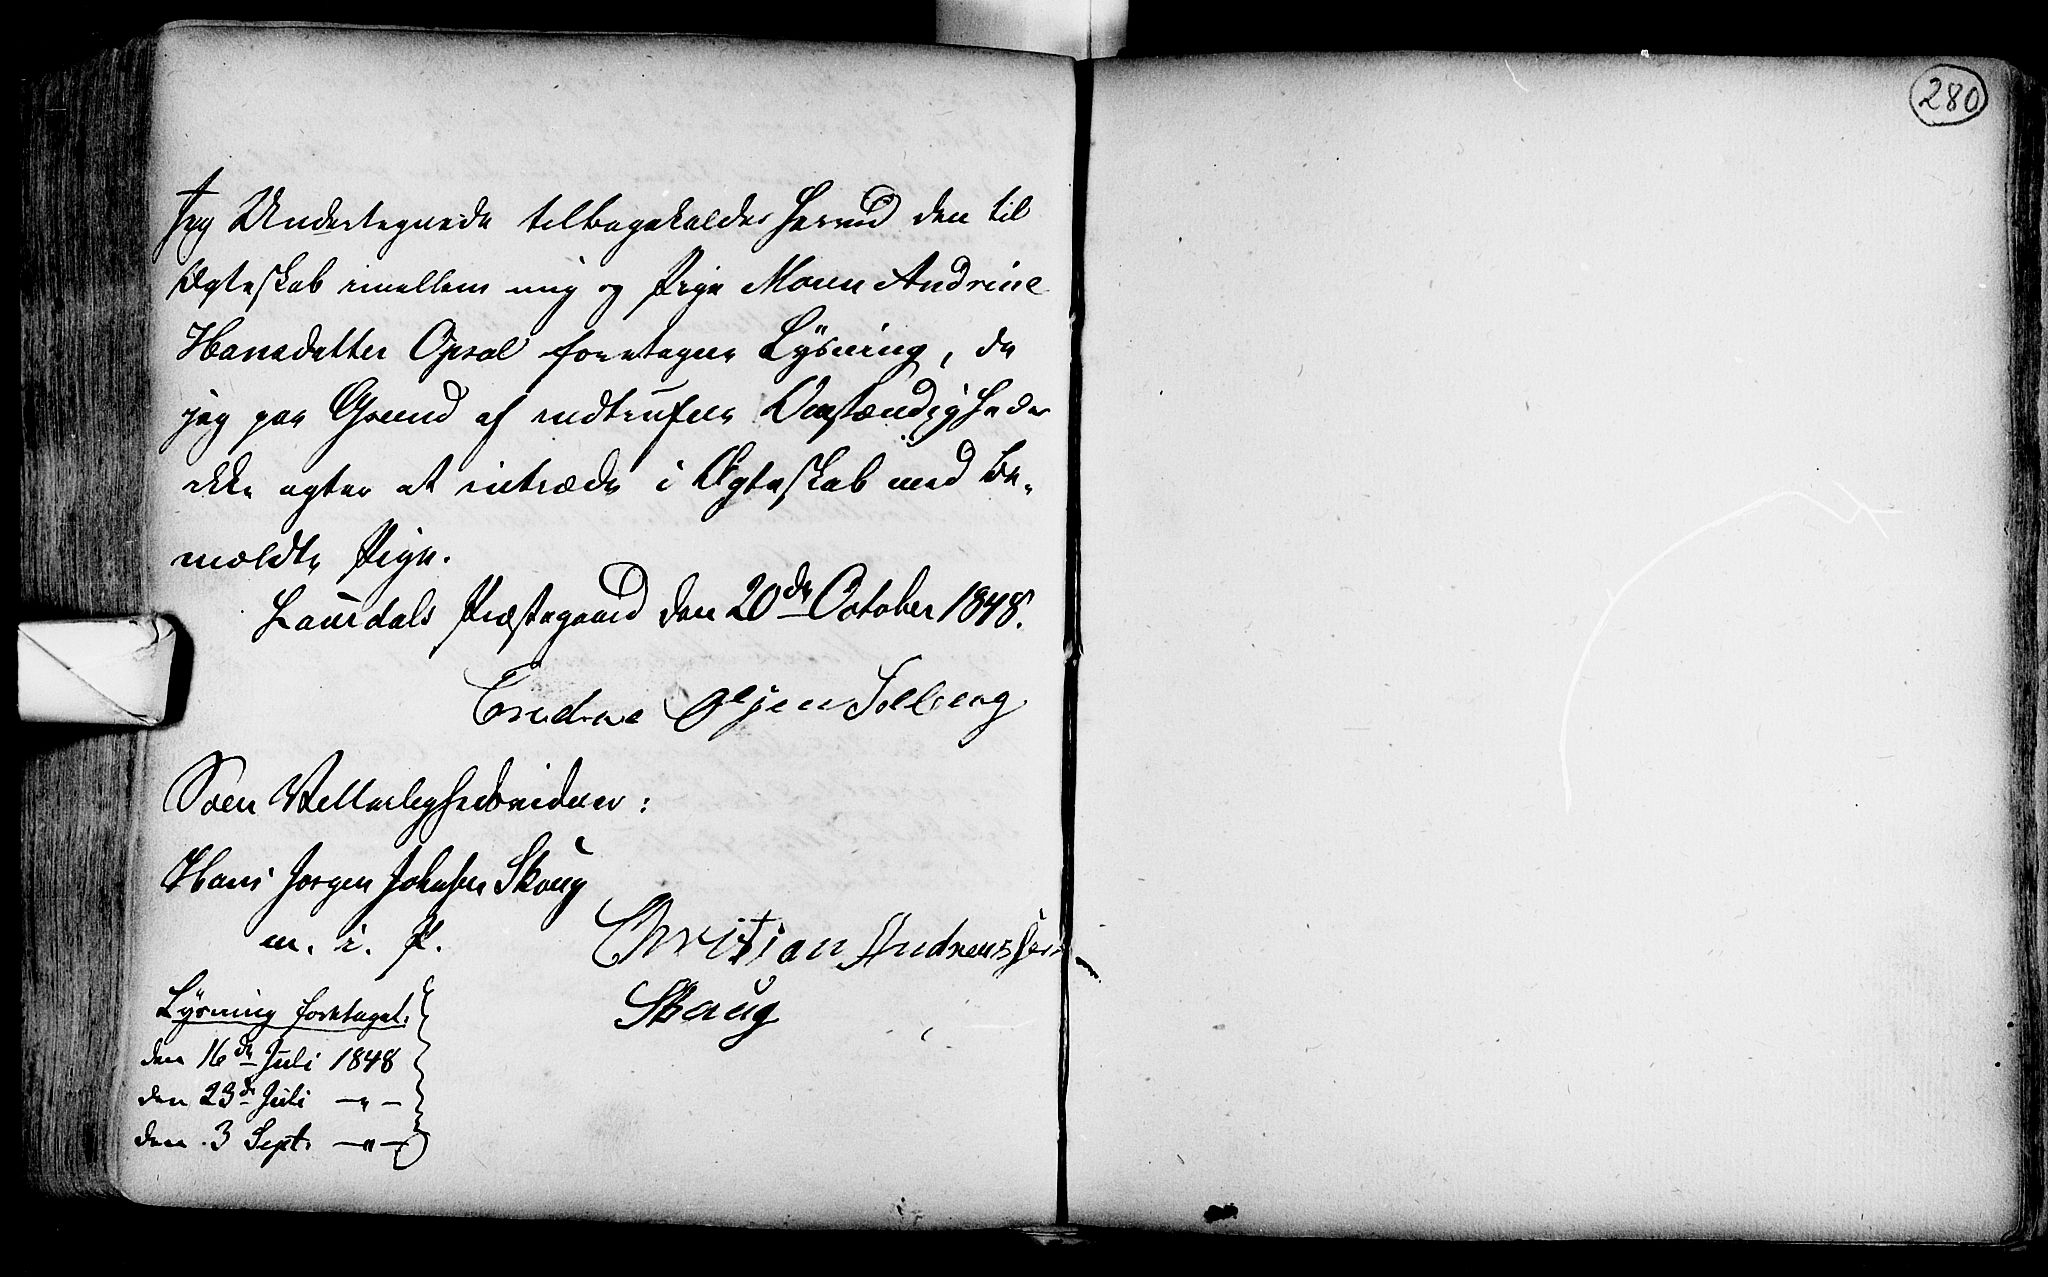 280
Jeg Undertegnede tilbagekalder herved den til
Ægteskab imellem mig og Pige Maren Andrine
Hansdatter Opsal foretagne Lysning, da
jeg paa Grund af indtrufne Omstændigheder
ikke agter at indtræde i Ægteskab med be-
meldte Pige.
Laurdals Præstegaard den 20de October 1848.
Solberg
Som Vitterlighedsvidner:
Hans Jørgen Johnsen Skoug
m. i. P.
Christian Andreassen
Skaug
Lysning foretaget.
den 16de Juli 1848
den 23de Juli —"—
den 3 Sept. —"—